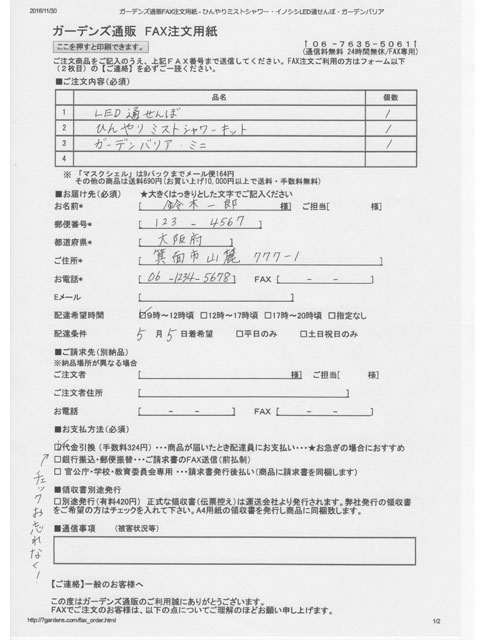 2016/11/30 ガーデンズ通販FAX注文用紙 - ひんやりミストシャワー・イノシシLED通せんぼ・ガーデンバリア
ガーデンズ通販 FAX注文用紙
ここを押すと印刷できます。
↑06-7635-5061↑
(通信料無料 24時間無休/FAX専用)
ご注文商品をご記入のうえ、上記FAX番号まで送信してください。FAX注文ご利用の方はフォーム以下
(2枚目)の【ご連絡】を必ずご一読ください。
■ご注文内容(必須)
品名 個数
1 LED通せんぼ 1
2 ひんやりミストシャワーキット 1
3 ガーデンバリア・ミニ 1
4
※ 「マスクシェル」は9パックまでメール便164円
その他の商品は送料690円(お買い上げ10,000円以上で送料・手数料無料)
■お届け先(必須) ★大きくはっきりとした文字でご記入ください
お名前* [ 鈴木一郎 様] ご担当[ 様]
郵便番号* [ 123 - 4567 ]
都道府県* [ 大阪府 ]
ご住所* [ 箕面市山麓 777-1 ]
お電話* [ 06 -1234- 5678 ] FAX [ - - ]
Eメール [ ]
配達希望時間 ☑9時～12時頃 □12時～17時頃 □17時～20時頃 □指定なし
配達条件 5 月 5 日着希望 □平日のみ □土日祝日のみ
■ご請求先(別納品)
※納品場所が異なる場合
ご注文者 [ 様] ご担当[ 様]
ご注文者住所 [ ]
お電話 [ - - ] FAX [ - - ]
■お支払方法(必須)
☑代金引換 (手数料324円)・・・商品が届いたとき配達員にお支払い・・・★お急ぎの場合におすすめ
□銀行振込・郵便振替・・・ご請求書のFAX送信(前払制)
□ 官公庁・学校・教育委員会専用 ・・・請求書発行後払い(商品に請求書を同梱します)
↑チェックお忘れなく!
■領収書別途発行
□別途発行(有料420円) 正式な領収書(伝票控え)は運送会社より発行されます。弊社発行の領収書
をご希望の方はチェックを入れて下さい。A4用紙の領収書を発行し商品に同梱致します。
■通信事項 (被害状況等)
【ご連絡】一般のお客様へ
この度はガーデンズ通販のご利用誠にありがとうございます。
FAXでご注文のお客様は、以下の点についてご理解のほどお願い申し上げます。
http://7gardens.com/fax_order.html 1/2